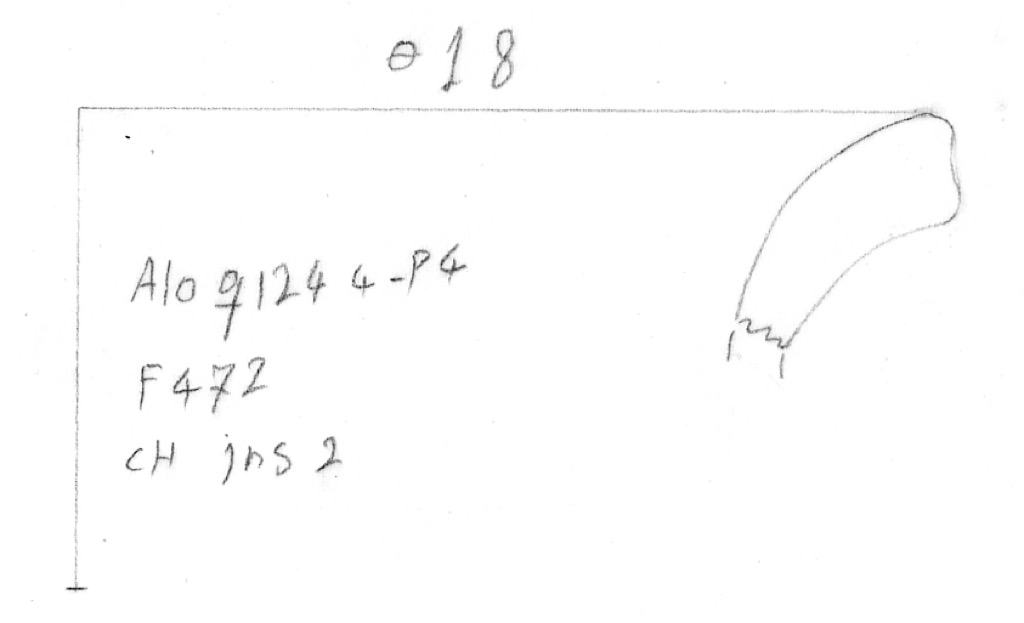 ɵ 18
Alo 91244-P4
F472
CH jns 2